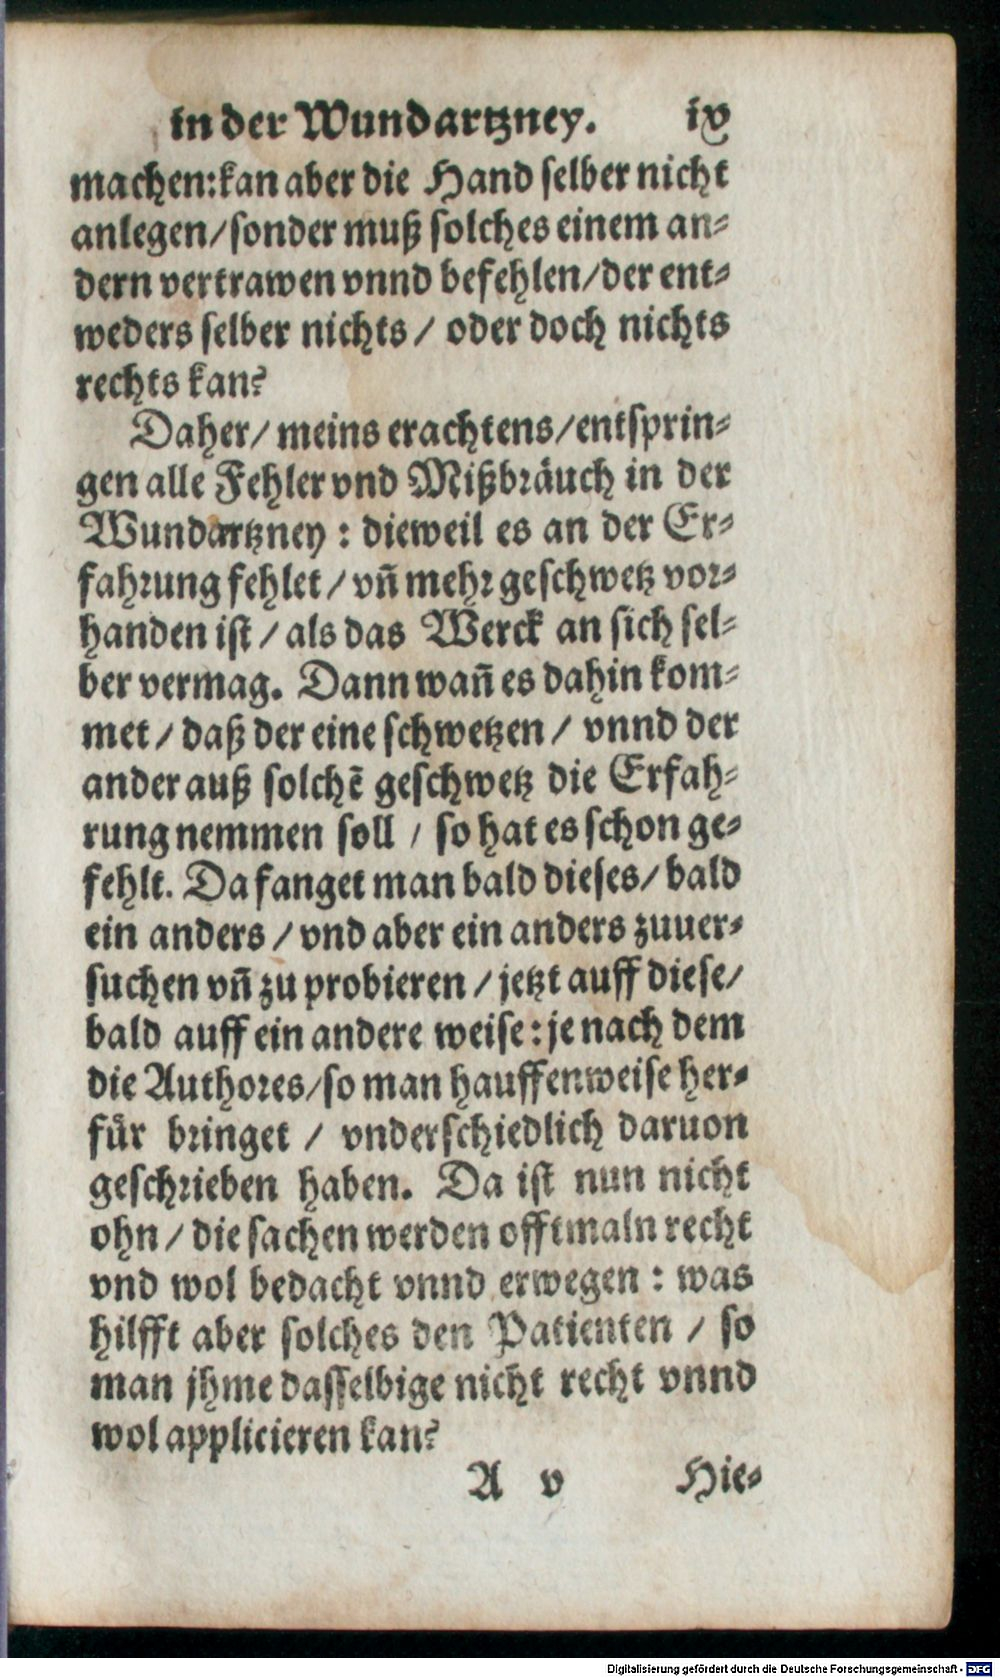 in der Wundartzney. ix
machen: kan aber die Hand selber nicht
anlegen / sonder muß solches einem an-
dern vertrawen vnnd befehlen / der ent-
weders selber nichts / oder doch nichts
rechts kan?
Daher / meins erachtens / entsprin-
gen alle Fehler vnd Mißbräuch in der
Wundartzney : dieweil es an der Er-
fahrung fehlet / vñ mehr geschwetz vor-
handen ist / als das Werck an sich sel-
ber vermag. Dann wañ es dahin kom-
met / daß der eine schwetzen / vnnd der
ander auß solchẽ geschwetz die Erfah-
rung nemmen soll / so hat es schon ge-
fehlt. Da fanget man bald dieses / bald
ein anders / vnd aber ein anders zuuer-
suchen vñ zu probieren / jetzt auff diese /
bald auff ein andere weise : je nach dem
die Authores / so man hauffenweise her-
für bringet / vnderschiedlich daruon
geschrieben haben. Da ist nun nicht
ohn / die sachen werden offtmaln recht
vnd wol bedacht vnnd erwegen : was
hilfft aber solches den Patienten / so
man jhme dasselbige nicht recht vnnd
wol applicieren kan?
A v Hie-
Digitalisierung gefördert durch die Deutsche Forschungsgemeinschaft - DFG